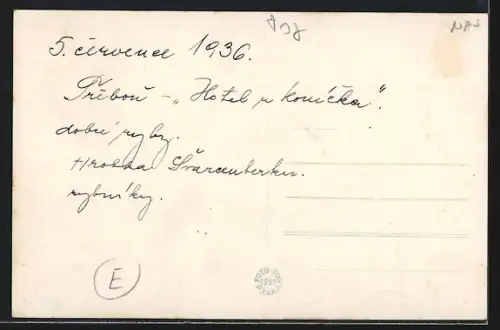 5. července 1936.
Třeboň – „Hotel u koníčka".
dobré ryby.
Hrobka Švarcenberku.
rybníky.
E